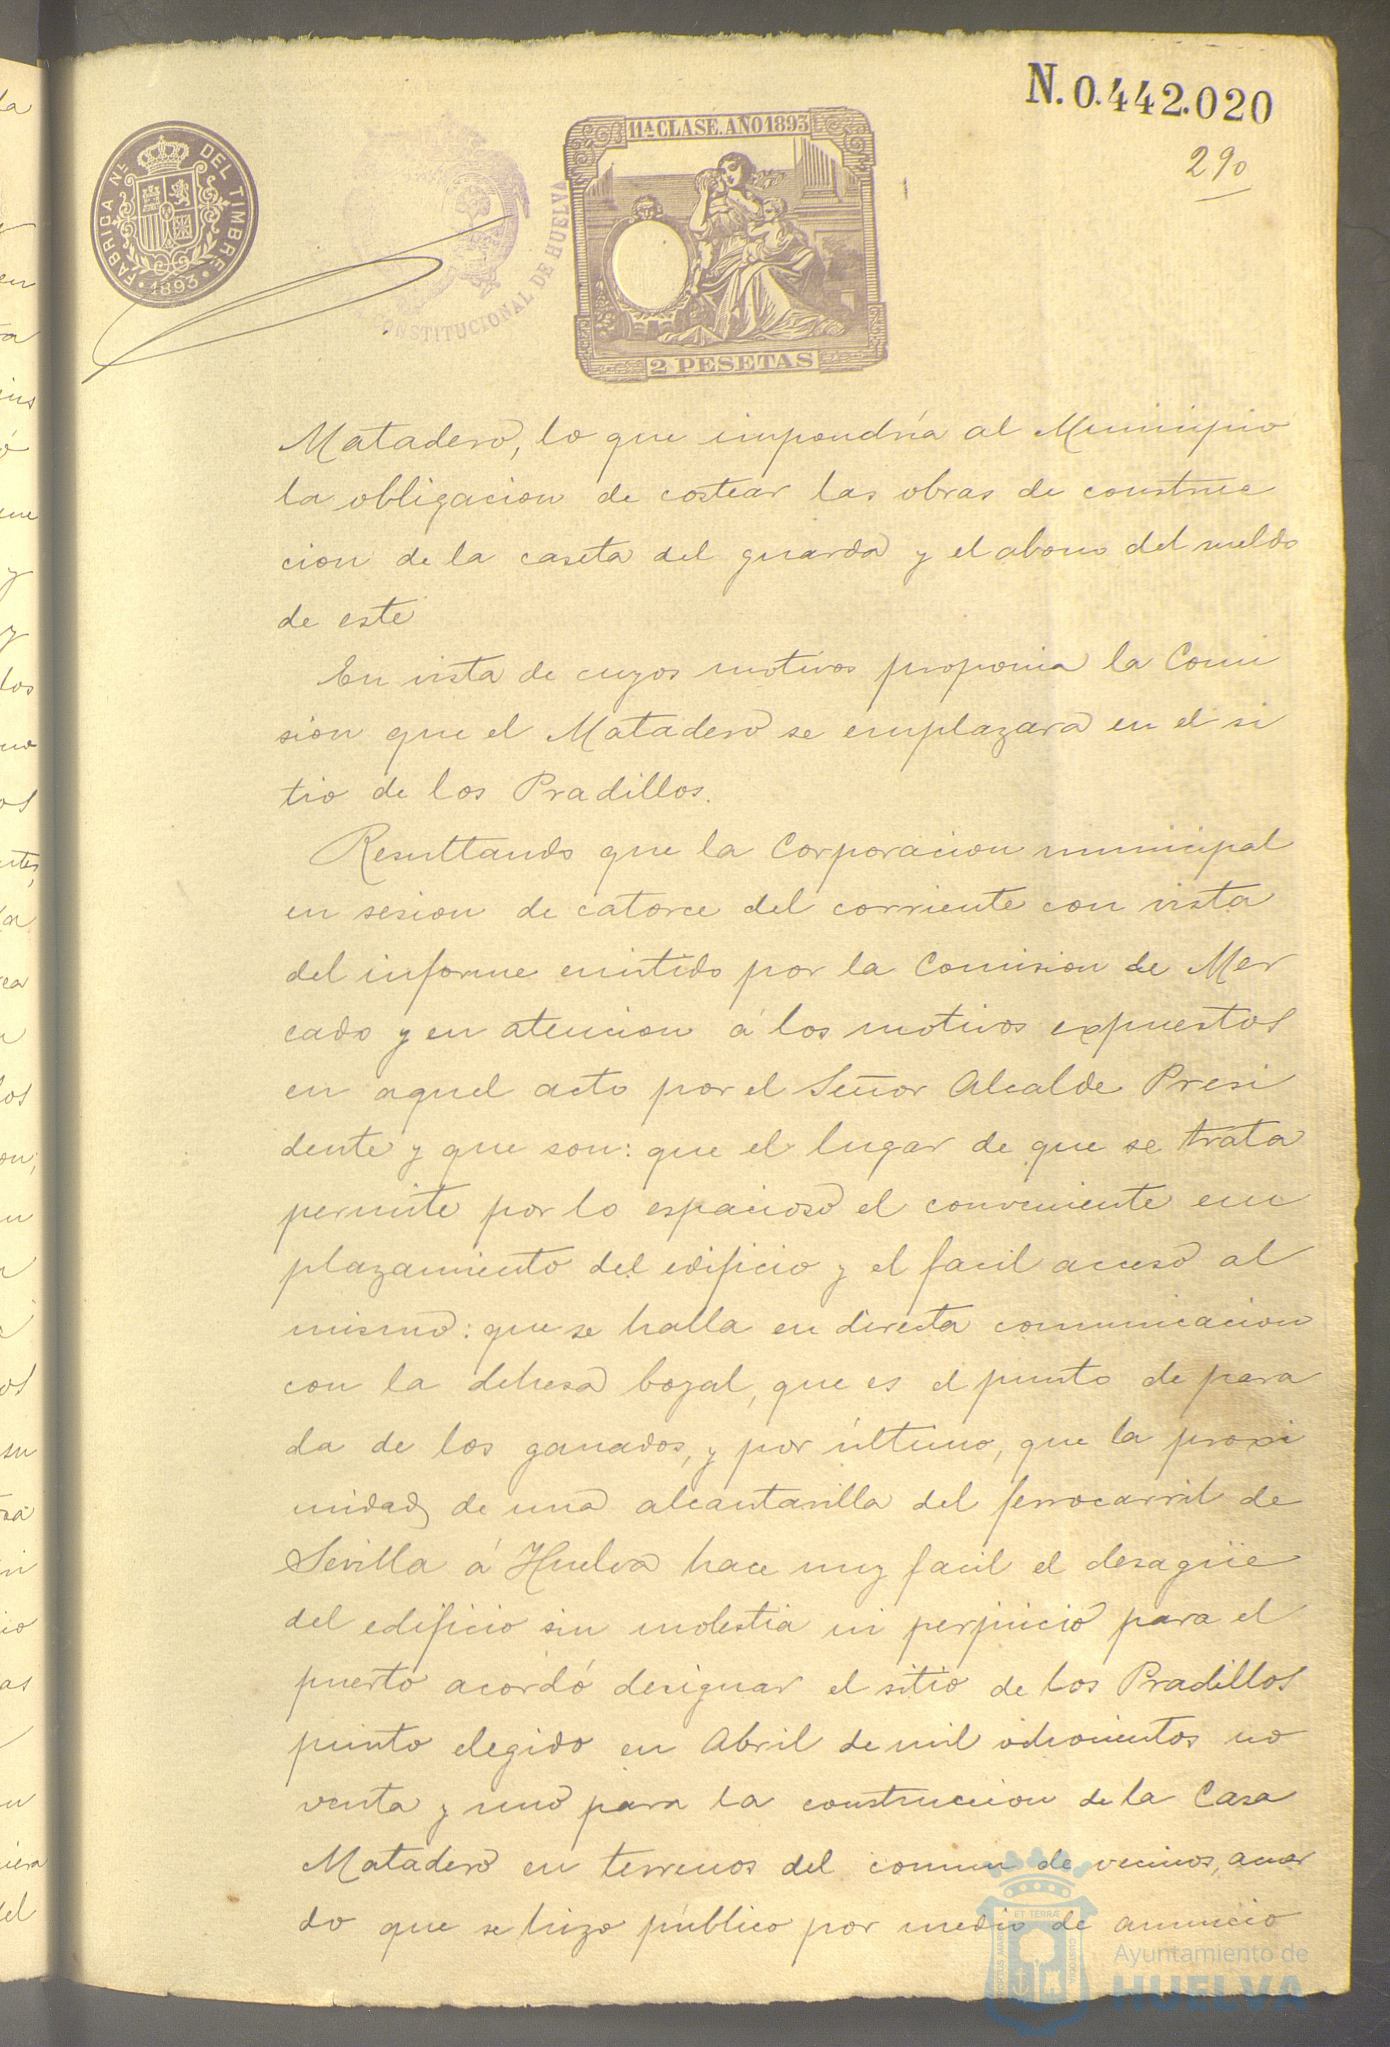 N. 0.442.020
290
FABRICA NL. DEL TIMBRE
1893
CONSTITUCIONAL DE HUELVA
11ª CLASE. AÑO 1893
2 PESETAS
Matadero, lo que impondría al Municipio
la obligacion de costear las obras de construc
cion de la caseta del guarda y el abono del sueldo
de este
En vista de cuyos motivos proponia la Comi
sion que el Matadero se emplazara en el si
tio de los Pradillos.
Resultando que la Corporacion municipal
en sesion de catorce del corriente con vista
del informe emitido por la Comision de Mer
cado y en atencion á los motivos expuestos
en aquel acto por el Señor Alcalde Presi
dente y que son: que el lugar de que se trata
permite por lo espacioso el conveniente em
plazamiento del edificio y el facil acceso al
mismo: que se halla en directa comunicacion
con la dehesa boyal, que es el punto de para
da de los ganados, y por último, que la proxi
midad de una alcantarilla del ferrocarril de
Sevilla á Huelva hace muy facil el desagüe
del edificio sin molestia ni perjuicio para el
puerto acordó designar el sitio de los Pradillos
punto elegido en Abril de mil ochocientos no
venta y uno para la construccion de la Casa
Matadero en terrenos del comun de vecinos, acuer
do que se hizo público por medio de anuncio
Ayuntamiento de
HUELVA